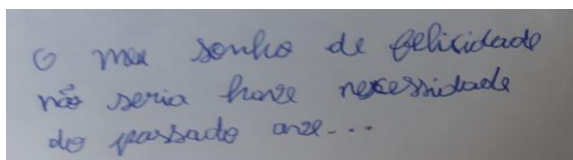 O meu sonho de felicidade
não seria honze necessidade
do passado onze...